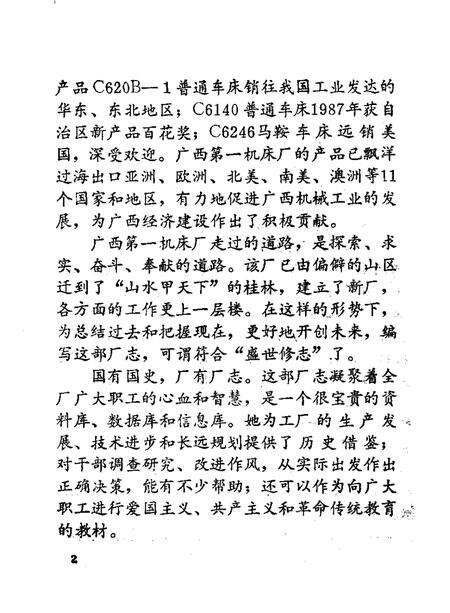 产品C620B—1普通车床销往我国工业发达的
华东、东北地区；C6140普通车床1987年获自
治区新产品百花奖；C6246马鞍车床远销美
国，深受欢迎。广西第一机床厂的产品已飘洋
过海出口亚洲、欧洲、北美、南美、澳洲等11
个国家和地区，有力地促进广西机械工业的发
展，为广西经济建设作出了积极贡献。
广西第一机床厂走过的道路，是探索、求
实、奋斗、奉献的道路。该厂已由偏僻的山区
迁到了“山水甲天下”的桂林，建立了新厂，
各方面的工作更上一层楼。在这样的形势下，
为总结过去和把握现在，更好地开创未来，编
写这部厂志，可谓符合“盛世修志”了。
国有国史，厂有厂志。这部厂志凝聚着全
厂广大职工的心血和智慧，是一个很宝贵的资
料库、数据库和信息库。她为工厂的生产发
展、技术进步和长远规划提供了历史借鉴；
对干部调查研究、改进作风，从实际出发作出
正确决策，能有不少帮助；还可以作为向广大
职工进行爱国主义、共产主义和革命传统教育
的教材。
2